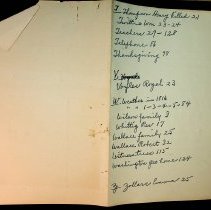 T. Thompson Henry Killed 22
Thrifts Corn 23-24
Teachers 27-128
Telephone 56
Thanksgiving 98
V.
Voyles Royal 23
W. Weather in 1816
" " 1-3-4-5-54
Wilson family 3
Whitting Pier 17
Wallace family 25
Wallace Robert 32
Witnesseries 115
Washington geo home 124
Z. Zollars Emma 25